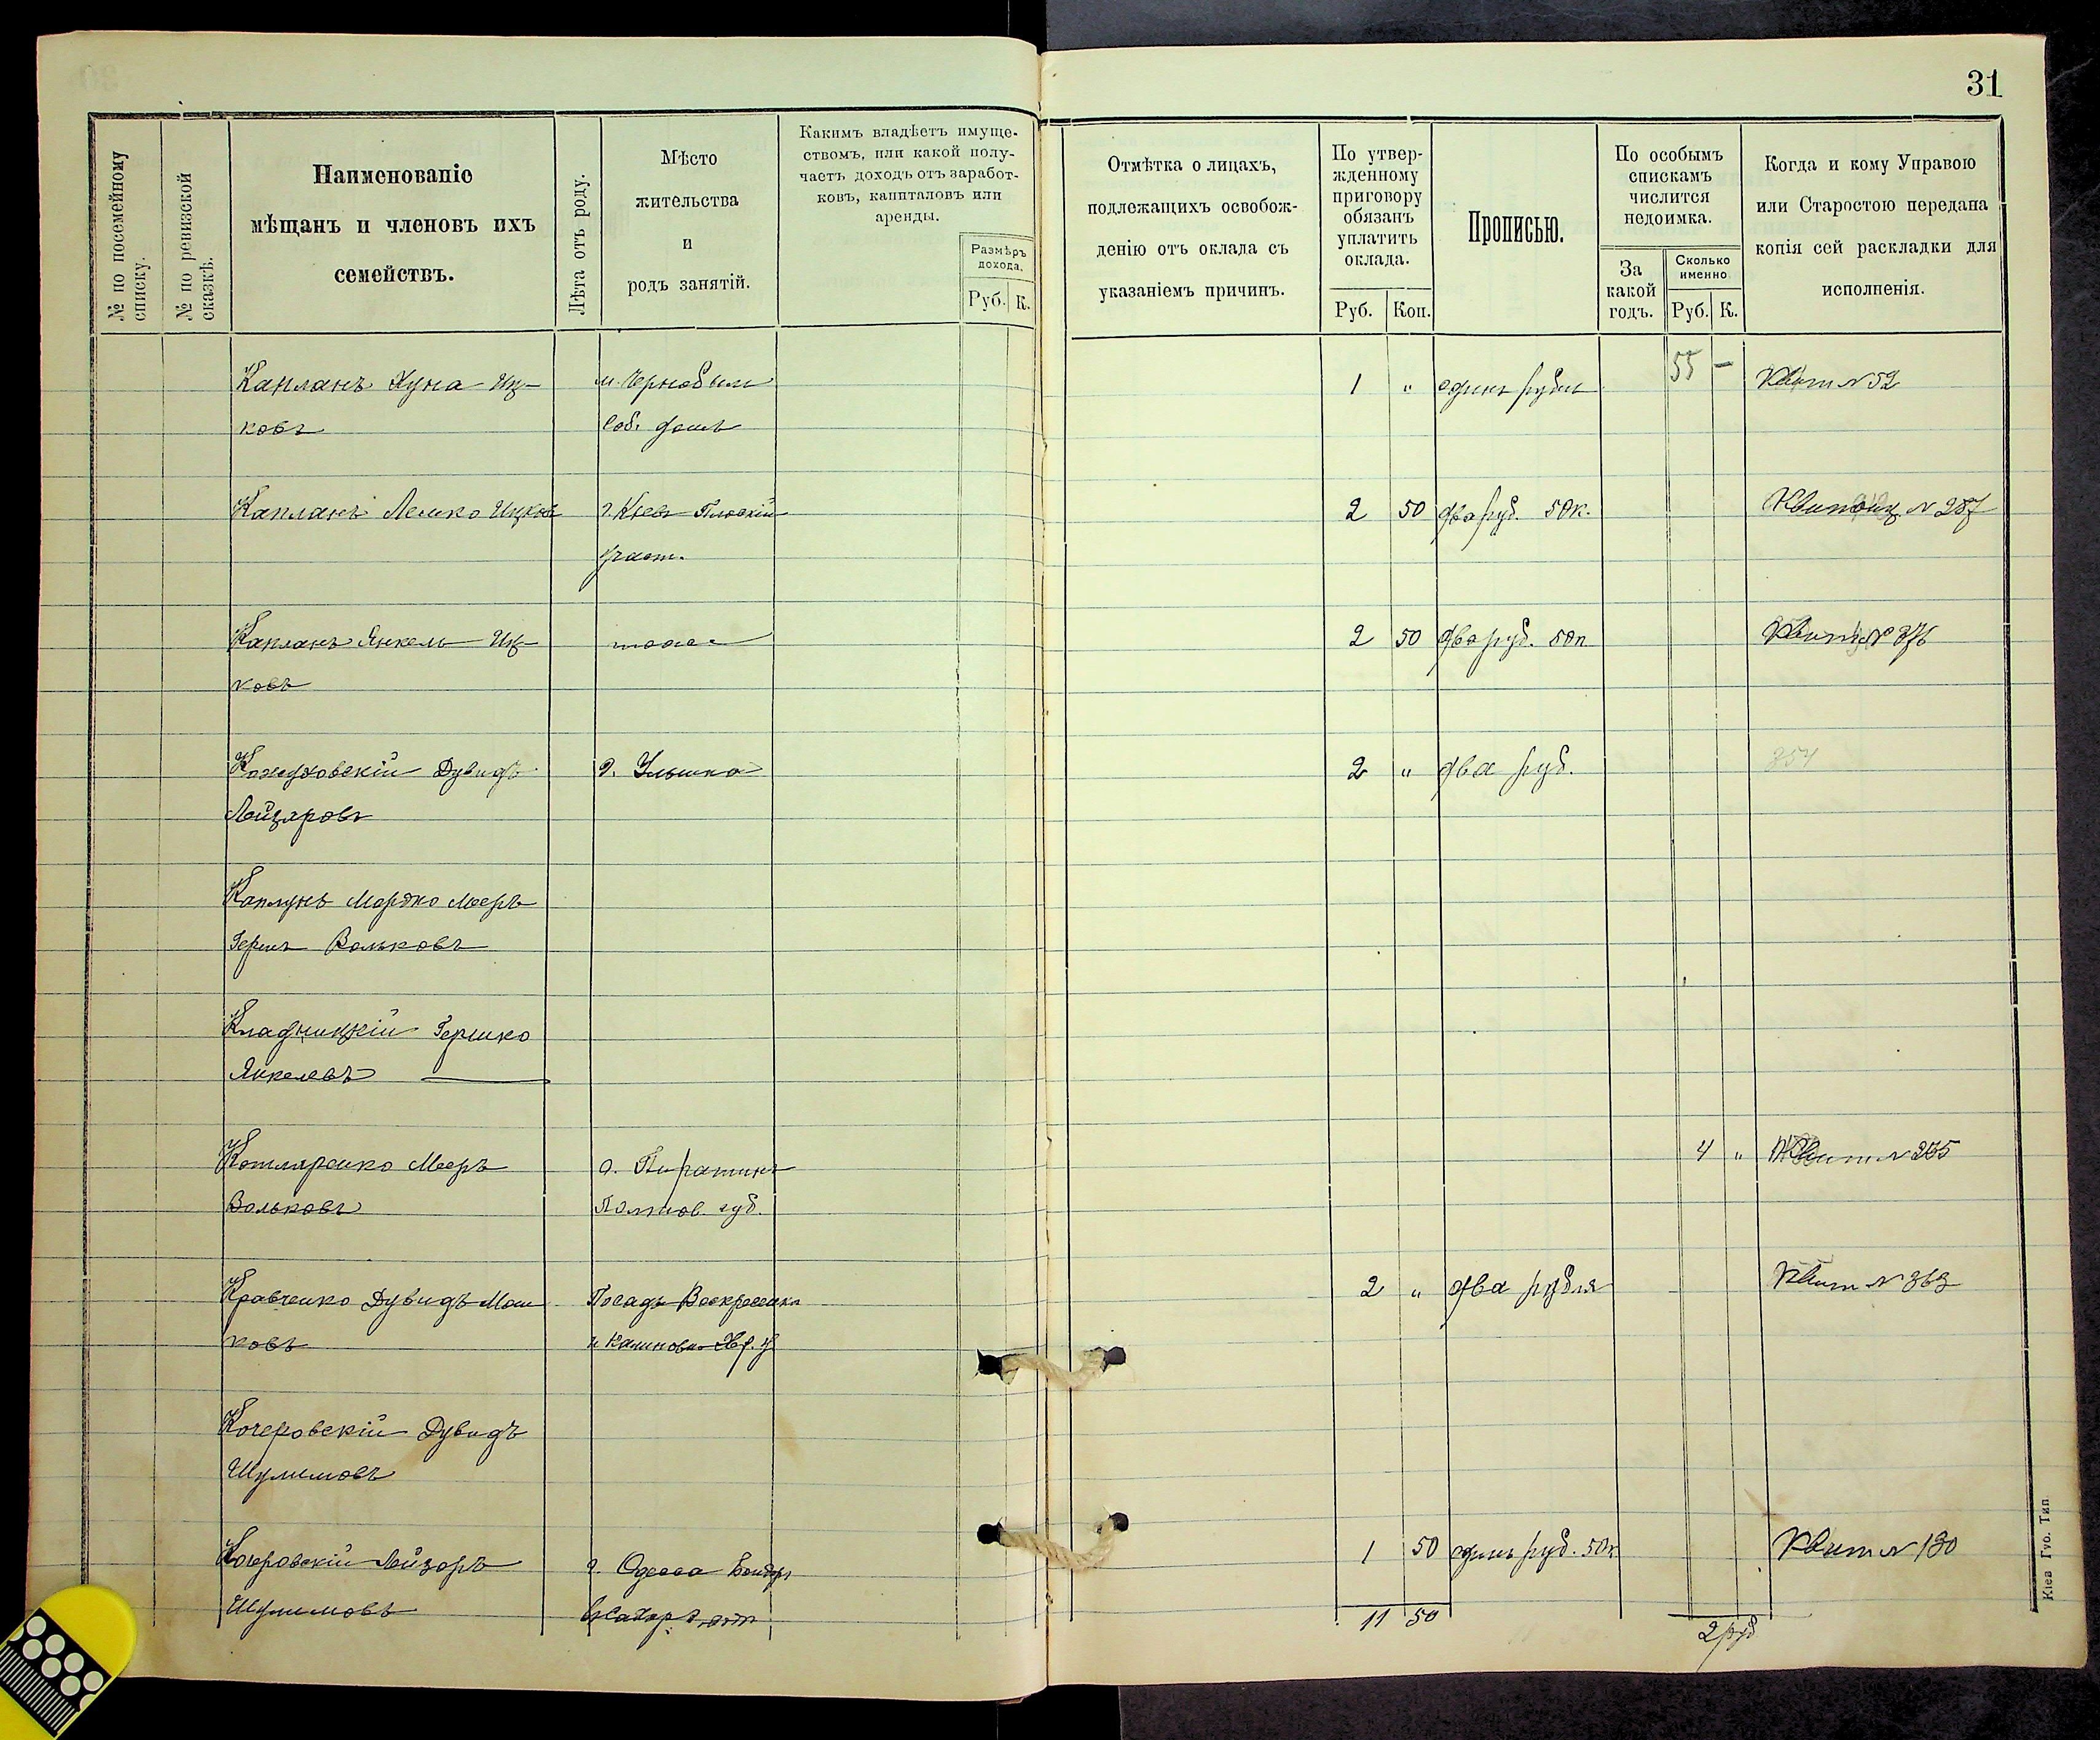 31
№ по посемейному списку.
№ по ревизской сказкѣ.
Наименованіе
мѣщанъ и членовъ ихъ
семействъ.
Лѣта отъ роду.
Мѣсто
жительства
и
родъ занятій.
Какимъ владѣетъ имуще-
ствомъ, или какой полу-
чаетъ доходъ отъ заработ-
ковъ, капиталовъ или
аренды.
Размѣръ
дохода.
Руб. К.
Отмѣтка о лицахъ,
подлежащихъ освобож-
денію отъ оклада съ
указаніемъ причинъ.
По утвер-
жденному
приговору
обязанъ
уплатить
оклада.
Руб. Коп.
Прописью.
По особымъ
спискамъ
числится
недоимка.
За
какой
годъ.
Сколько
именно
Руб. К.
Когда и кому Управою
или Старостою передана
копія сей раскладки для
исполненія.
Капланъ Нуна Иц- м. Чернобыль 1 " одинъ рубль 55 — Квит № 52
ковъ Соб. домъ
Капланъ Лейко Ицковъ г. Кіевъ Плоскій 2 50 два руб. 50 к. № 287
участ.
Капланъ Янкель Иц- тоже 2 50 два руб. 50 к. Квит № 376
ковъ
Кожуховскій Дувидъ 2 " два руб. 354
Лейзаровъ
Каплунъ Мордко Мееръ
Гершъ Вольковъ
Кладницкій Гершко
Янкелевъ
Котляренко Мееръ г. Пирятинъ 4 " Квит № 265
Вольковъ Полтов. губ.
Кравченко Дувидъ Мош Посадъ Воскресенка 2 " два рубля Квит № 363
ковъ
Кочеровскій Дувидъ
Шулимовъ
Кочеровскій Лейзоръ г. Одесса 1 50 одинъ руб. 50 к. Квит № 130
Шулимовъ
11 50 2 руб
Кіев Губ. Тип.